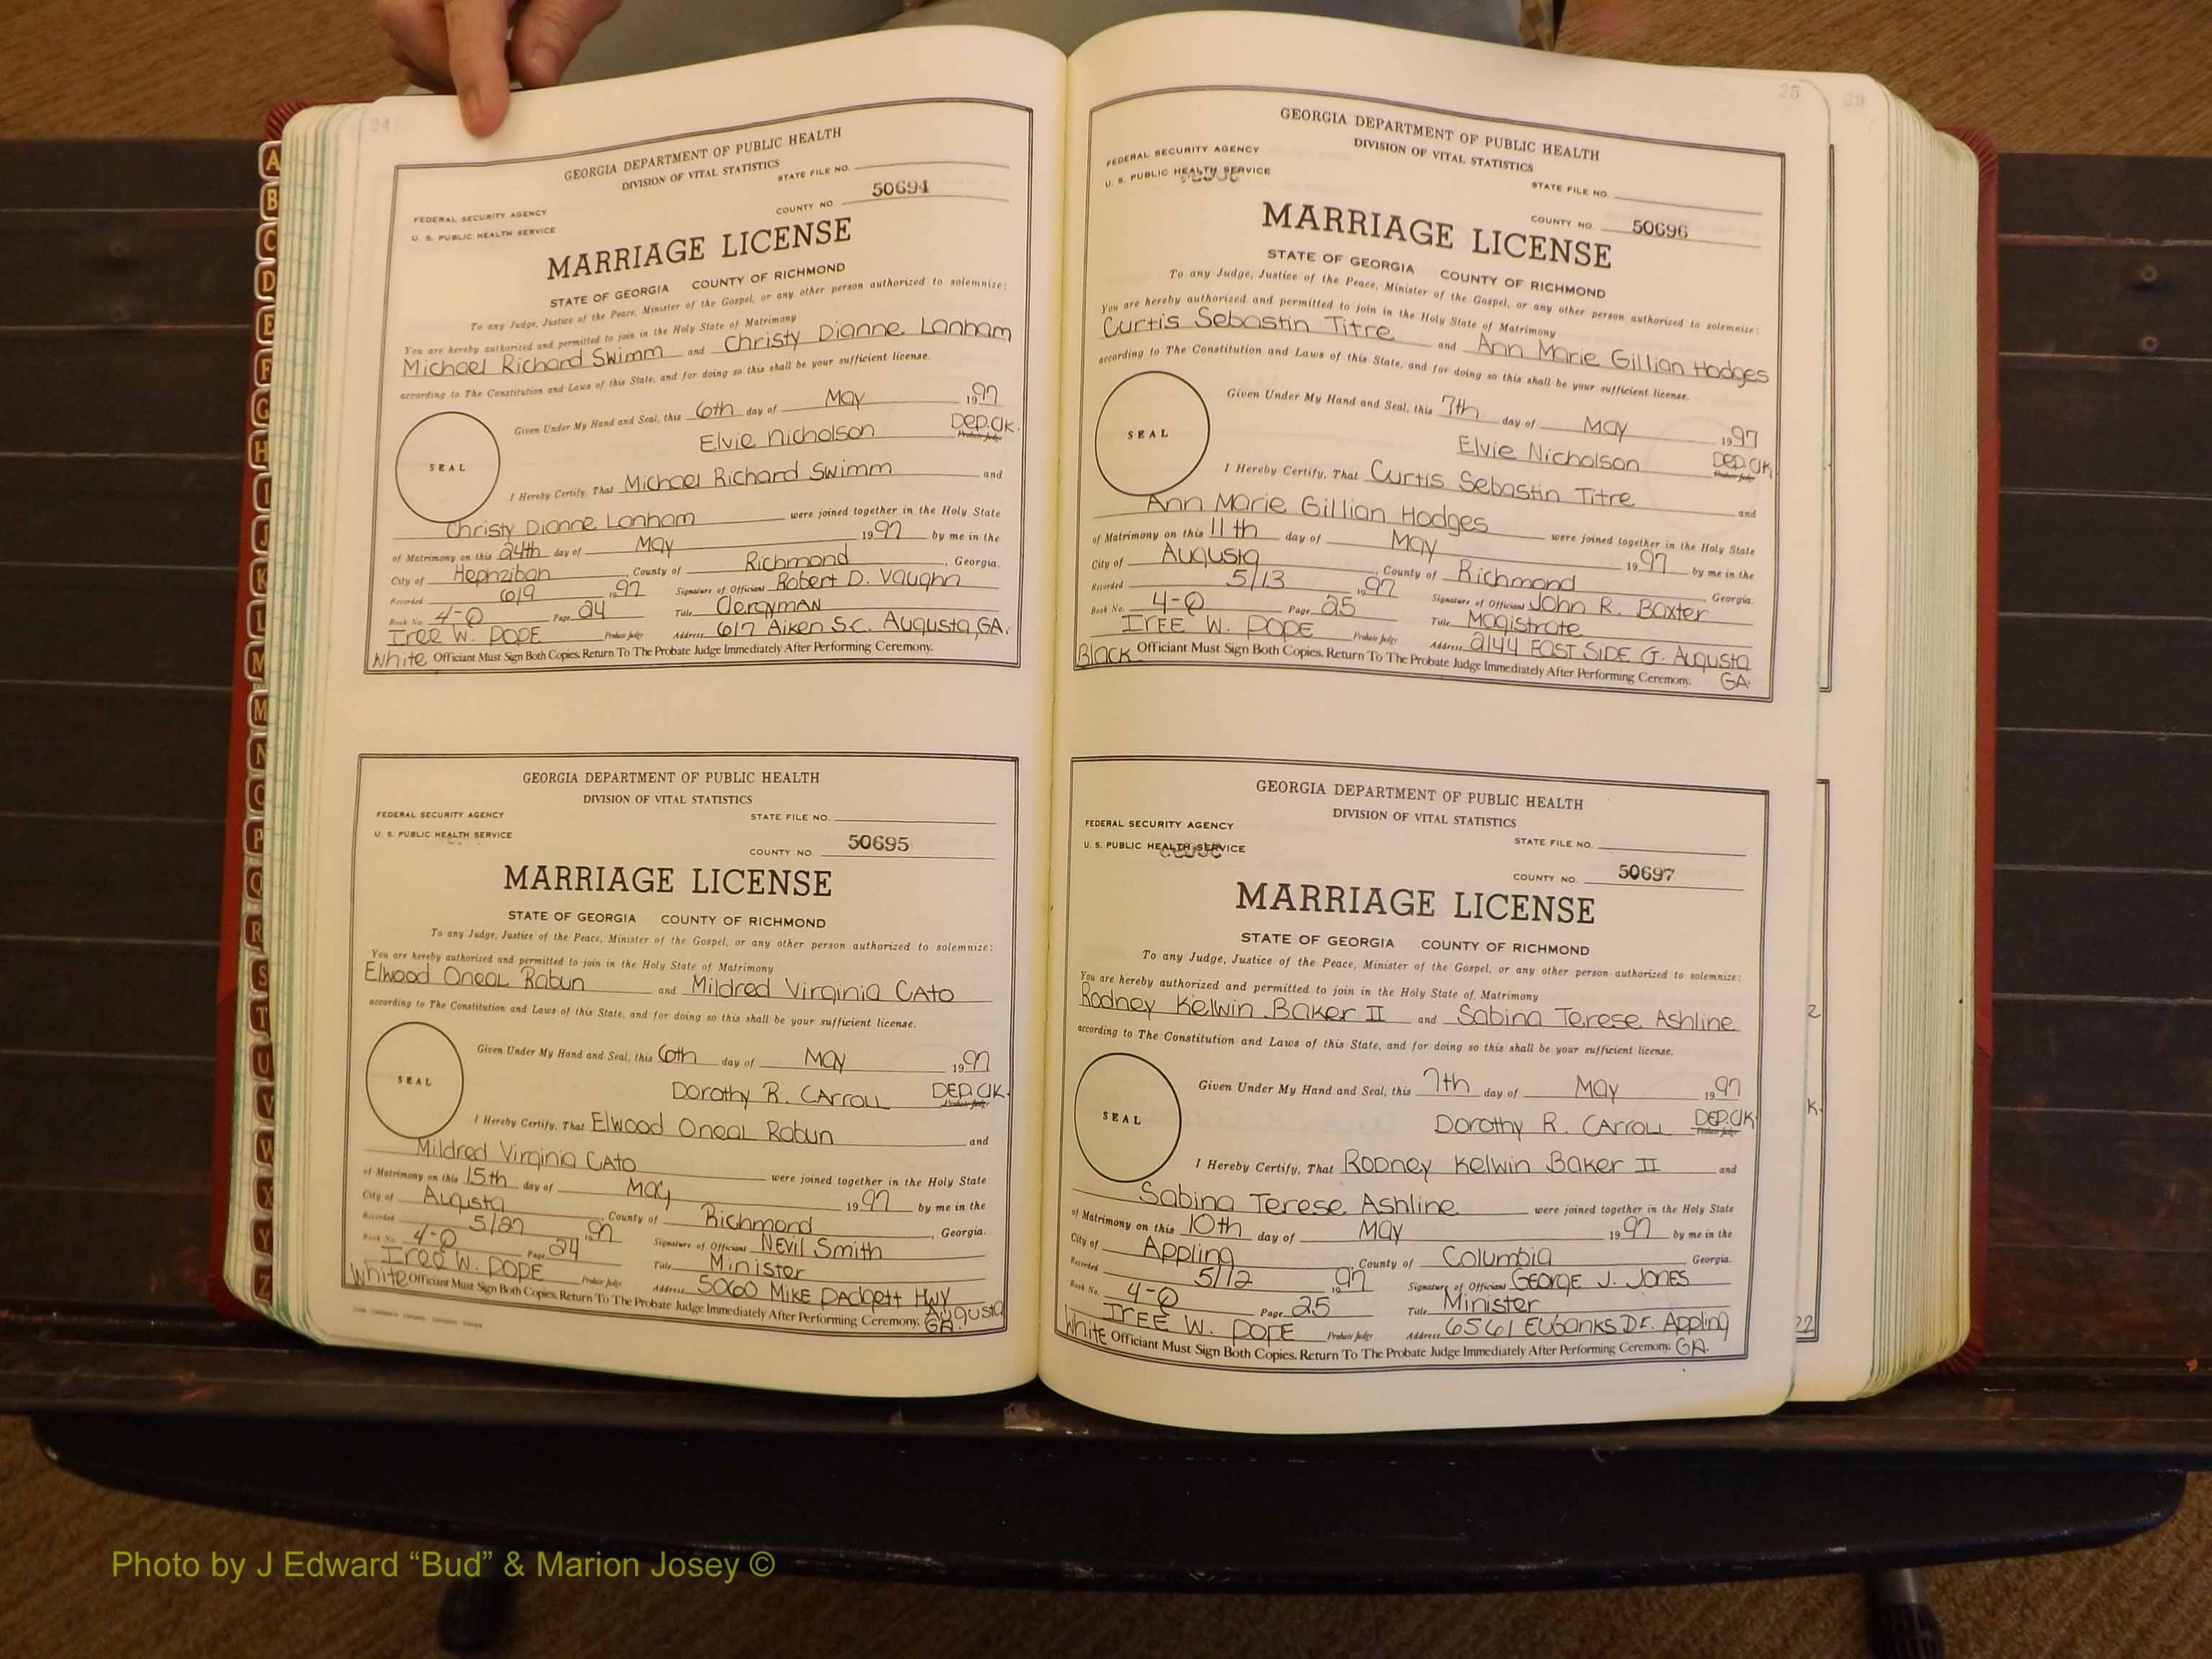 24
GEORGIA DEPARTMENT OF PUBLIC HEALTH
DIVISION OF VITAL STATISTICS
STATE FILE NO.
FEDERAL SECURITY AGENCY
U. S. PUBLIC HEALTH SERVICE
COUNTY NO. 50694
MARRIAGE LICENSE
STATE OF GEORGIA COUNTY OF RICHMOND
To any Judge, Justice of the Peace, Minister of the Gospel, or any other person authorized to solemnize:
You are hereby authorized and permitted to join in the Holy State of Matrimony
Michael Richard Swimm and Christy Dianne Lanham
according to The Constitution and Laws of this State, and for doing so this shall be your sufficient license.
Given Under My Hand and Seal, this 6th day of May 1997
Elvie Nicholson DEP.Clk.
Probate Judge
SEAL
I Hereby Certify, That Michael Richard Swimm and
Christy Dianne Lanham were joined together in the Holy State
of Matrimony on this 24th day of May 1997 by me in the
City of Hephzibah, County of Richmond, Georgia.
Recorded 6/9 1997 Signature of Official Robert D. Vaughn
Book No. 4-Q Page 24 Title Clergyman
Iree W. Pope Probate Judge Address 617 Aiken S.C. Augusta, GA.
White Officiant Must Sign Both Copies. Return To The Probate Judge Immediately After Performing Ceremony.
GEORGIA DEPARTMENT OF PUBLIC HEALTH
DIVISION OF VITAL STATISTICS
FEDERAL SECURITY AGENCY
STATE FILE NO.
U. S. PUBLIC HEALTH SERVICE
COUNTY NO. 50695
MARRIAGE LICENSE
STATE OF GEORGIA COUNTY OF RICHMOND
To any Judge, Justice of the Peace, Minister of the Gospel, or any other person authorized to solemnize:
You are hereby authorized and permitted to join in the Holy State of Matrimony
Elwood Oneal Rabun and Mildred Virginia Cato
according to The Constitution and Laws of this State, and for doing so this shall be your sufficient license.
Given Under My Hand and Seal, this 6th day of May 1997
Dorothy R. Carroll DEP.Clk.
Probate Judge
SEAL
I Hereby Certify, That Elwood Oneal Rabun and
Mildred Virginia Cato were joined together in the Holy State
of Matrimony on this 15th day of May 1997 by me in the
City of Augusta, County of Richmond, Georgia.
Recorded 5/27 1997 Signature of Official Nevil Smith
Book No. 4-Q Page 24 Title Minister
Iree W. Pope Probate Judge Address 5060 Mike Padgett Hwy
White Officiant Must Sign Both Copies. Return To The Probate Judge Immediately After Performing Ceremony. Augusta
GA.
25
GEORGIA DEPARTMENT OF PUBLIC HEALTH
DIVISION OF VITAL STATISTICS
FEDERAL SECURITY AGENCY
U. S. PUBLIC HEALTH SERVICE
STATE FILE NO.
COUNTY NO. 50696
MARRIAGE LICENSE
STATE OF GEORGIA COUNTY OF RICHMOND
To any Judge, Justice of the Peace, Minister of the Gospel, or any other person authorized to solemnize:
You are hereby authorized and permitted to join in the Holy State of Matrimony
Curtis Sebastin Titre and Ann Marie Gillian Hodges
according to The Constitution and Laws of this State, and for doing so this shall be your sufficient license.
Given Under My Hand and Seal, this 7th day of May 1997
Elvie Nicholson DEP.Clk
Probate Judge
SEAL
I Hereby Certify, That Curtis Sebastin Titre and
Ann Marie Gillian Hodges were joined together in the Holy State
of Matrimony on this 11th day of May 1997 by me in the
City of Augusta, County of Richmond Georgia.
Recorded 5/13 1997 Signature of Official John R. Baxter
Book No. 4-Q Page 25 Title Magistrate
Iree W. Pope Probate Judge Address 2144 East Side G. Augusta
Black Officiant Must Sign Both Copies. Return To The Probate Judge Immediately After Performing Ceremony. GA.
GEORGIA DEPARTMENT OF PUBLIC HEALTH
DIVISION OF VITAL STATISTICS
FEDERAL SECURITY AGENCY
STATE FILE NO.
U. S. PUBLIC HEALTH SERVICE
COUNTY NO. 50697
MARRIAGE LICENSE
STATE OF GEORGIA COUNTY OF RICHMOND
To any Judge, Justice of the Peace, Minister of the Gospel, or any other person authorized to solemnize:
You are hereby authorized and permitted to join in the Holy State of Matrimony
Rodney Kelwin Baker II and Sabina Terese Ashline
according to The Constitution and Laws of this State, and for doing so this shall be your sufficient license.
Given Under My Hand and Seal, this 7th day of May 1997
Dorothy R. Carroll DEP.Clk.
Probate Judge
SEAL
I Hereby Certify, That Rodney Kelwin Baker II and
Sabina Terese Ashline were joined together in the Holy State
of Matrimony on this 10th day of May 1997 by me in the
City of Appling, County of Columbia Georgia.
Recorded 5/12 1997 Signature of Official George J. Jones
Book No. 4-Q Page 25 Title Minister
Iree W. Pope Probate Judge Address 6561 Eubanks Dr. Appling
White Officiant Must Sign Both Copies. Return To The Probate Judge Immediately After Performing Ceremony. GA.
29
2
K.
22
A
B
C
D
E
F
G
H
I
J
K
L
M
M
N
O
P
Q
R
S
T
U
V
W
X
Y
Z
Photo by J Edward “Bud” & Marion Josey ©